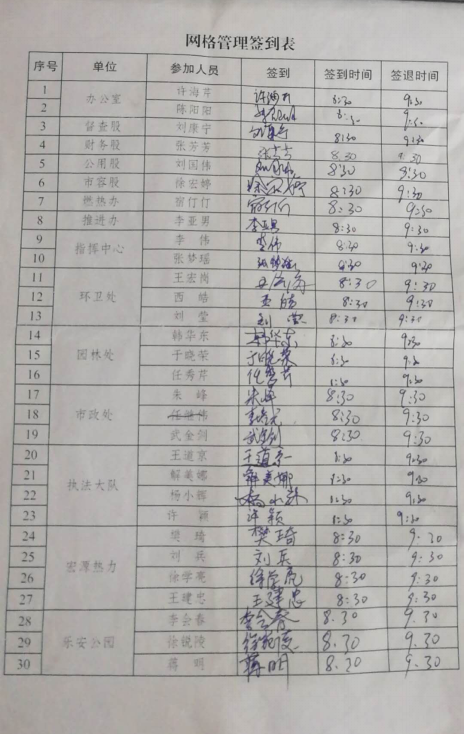 网格管理签到表
序号 单位 参加人员 签到 签到时间 签退时间
1 办公室 许海芹 许海芹 8:30 9:30
2 陈阳阳 8:30 9:30
3 督查股 刘康宁 刘康宁 8:30 9:30
4 财务股 张芳芳 张芳芳 8:30 9:30
5 公用股 刘国伟 8:30 9:30
6 市容股 徐宏婷 8:30 9:30
7 燃热办 宿仃仃 宿仃仃 8:30 9:30
8 推进办 李亚男 李亚男 8:30 9:30
9 指挥中心 李伟 李伟 8:30 9:30
10 张梦瑶 8:30 9:30
11 环卫处 王宏岗 8:30 9:30
12 西皓 8:30 9:30
13 刘莹 刘莹 8:30 9:30
14 园林处 韩华东 韩华东 8:30 9:30
15 于晓荣 于晓荣 8:30 9:30
16 任秀芹 任秀芹 8:30 9:30
17 市政处 朱峰 朱峰 8:30 9:30
18 任继伟 8:30 9:30
19 武金剑 8:30 9:30
20 执法大队 王道京 王道京 8:30 9:30
21 解美娜 解美娜 8:30 9:30
22 杨小辉 8:30 9:30
23 许颖 许颖 8:30 9:30
24 宏源热力 樊琦 8:30 9.30
25 刘兵 刘兵 8:30 9.30
26 徐学亮 徐学亮 8:30 9:30
27 王建忠 王建忠 8:30 9:30
28 乐安公园 李会春 李会春 8.30 9.30
29 徐锐陵 8.30 9.30
30 蒋明 蒋明 8.30 9.30